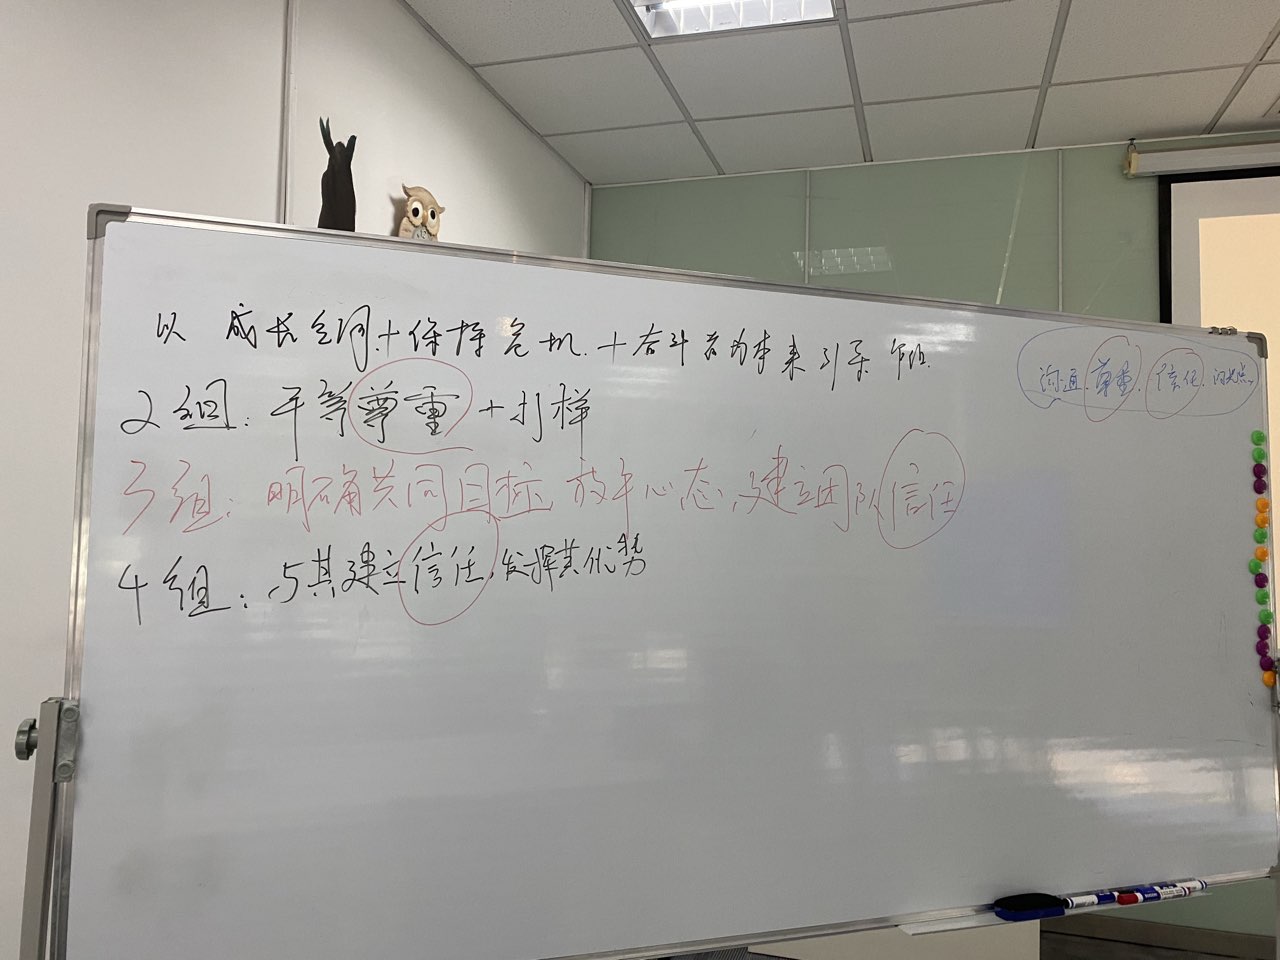 以成长空间+保持危机+奋斗者为本来引荐
2组:平等尊重+打样
3组:明确共同目标,放平心态,建立团队信任
4组:与其建立信任,发挥其优势
沟通.尊重.信任.闪光点